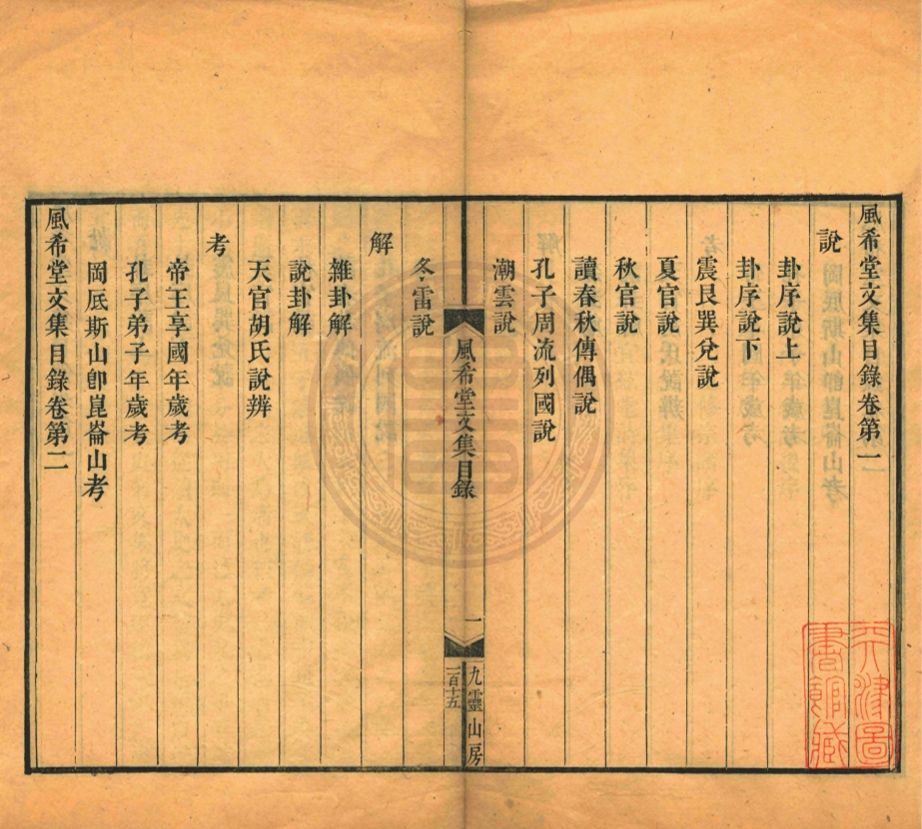 風希堂文集目錄卷第一
說
卦序說上
卦序說下
震艮巽兌說
夏官說
秋官說
讀春秋傳偶說
孔子周流列國說
潮雲說
風希堂文集目錄
一
九靈山房
一百十五
冬雷說
解
雜卦解
說卦解
天官胡氏說辨
考
帝王享國年歲考
孔子弟子年歲考
岡底斯山卽崑崙山考
風希堂文集目錄卷第二
天津圖
書館藏